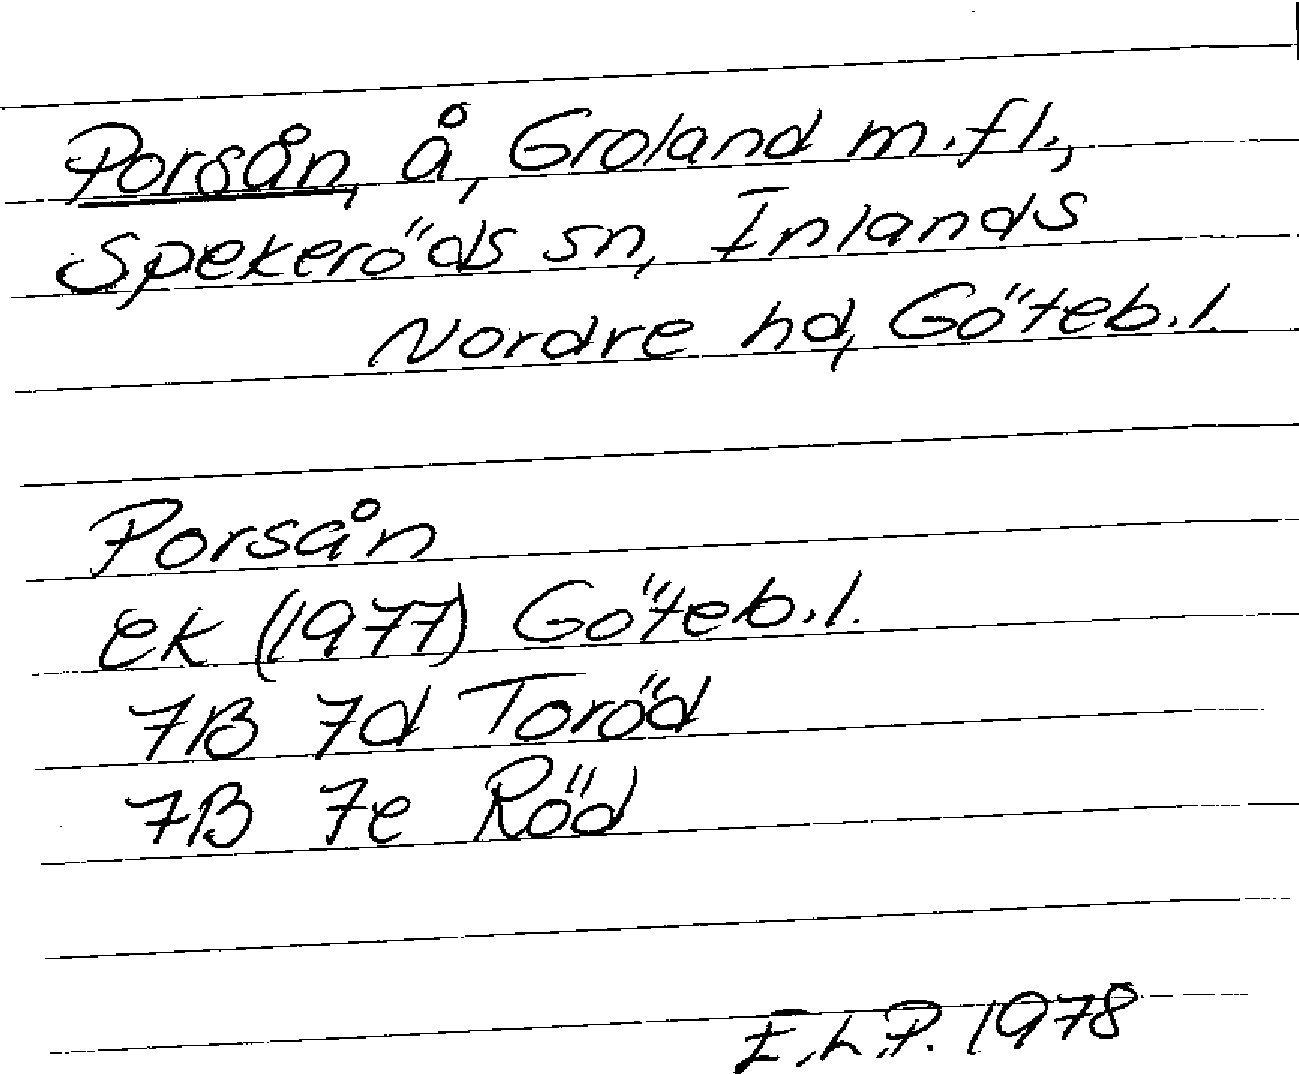 Porsån, å, Groland m.fl.,
Spekeröds sn, Inlands
Nordre hd, Göteb.l.
Porsån
ek (1977) Göteb.l.
7B 7d Toröd
7B 7e Röd
E.L.P. 1978